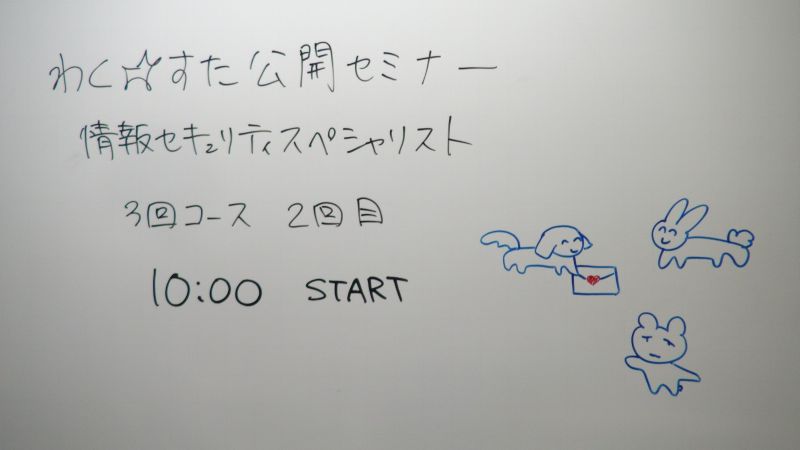 わく☆すた公開セミナー
情報セキュリティスペシャリスト
3回コース 2回目
10:00 START